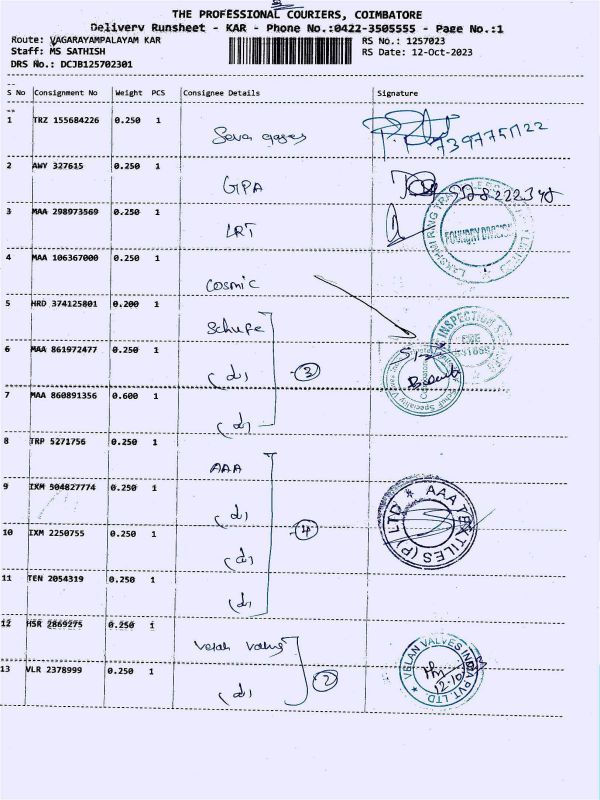 THE PROFESSIONAL COURIERS, COIMBATORE
Delivery Runsheet - KAR - Phone No.:0422-3505555 - Page No.:1
Route: VAGARAYAMPALAYAM KAR
RS No.: 1257023
Staff: MS SATHISH
RS Date: 12-Oct-2023
DRS No.: DCJB125702301
S No Consignment No Weight PCS Consignee Details Signature
1 TRZ 155684226 0.250 1
2 AWY 327615 0.250 1 GPA
3 MAA 298973569 0.250 1 LRT
FOUNDRY DIVISION
4 MAA 106367000 0.250 1 Cosmic
5 HRD 374125801 0.200 1 Schufe
6 MAA 861972477 0.250 1 (d) 3
7 MAA 860891356 0.600 1 (d)
8 TRP 5271756 0.250 1 AAA
9 IXM 504827774 0.250 1 (d)
AAA TEXTILES (P) LTD
10 IXM 2250755 0.250 1 (d) 4
11 TEN 2054319 0.250 1 (d)
12 HSR 2869275 0.250 1 Velan Valves
VELAN VALVES INDIA PVT. LTD.
12.10
13 VLR 2378999 0.250 1 (d) 2